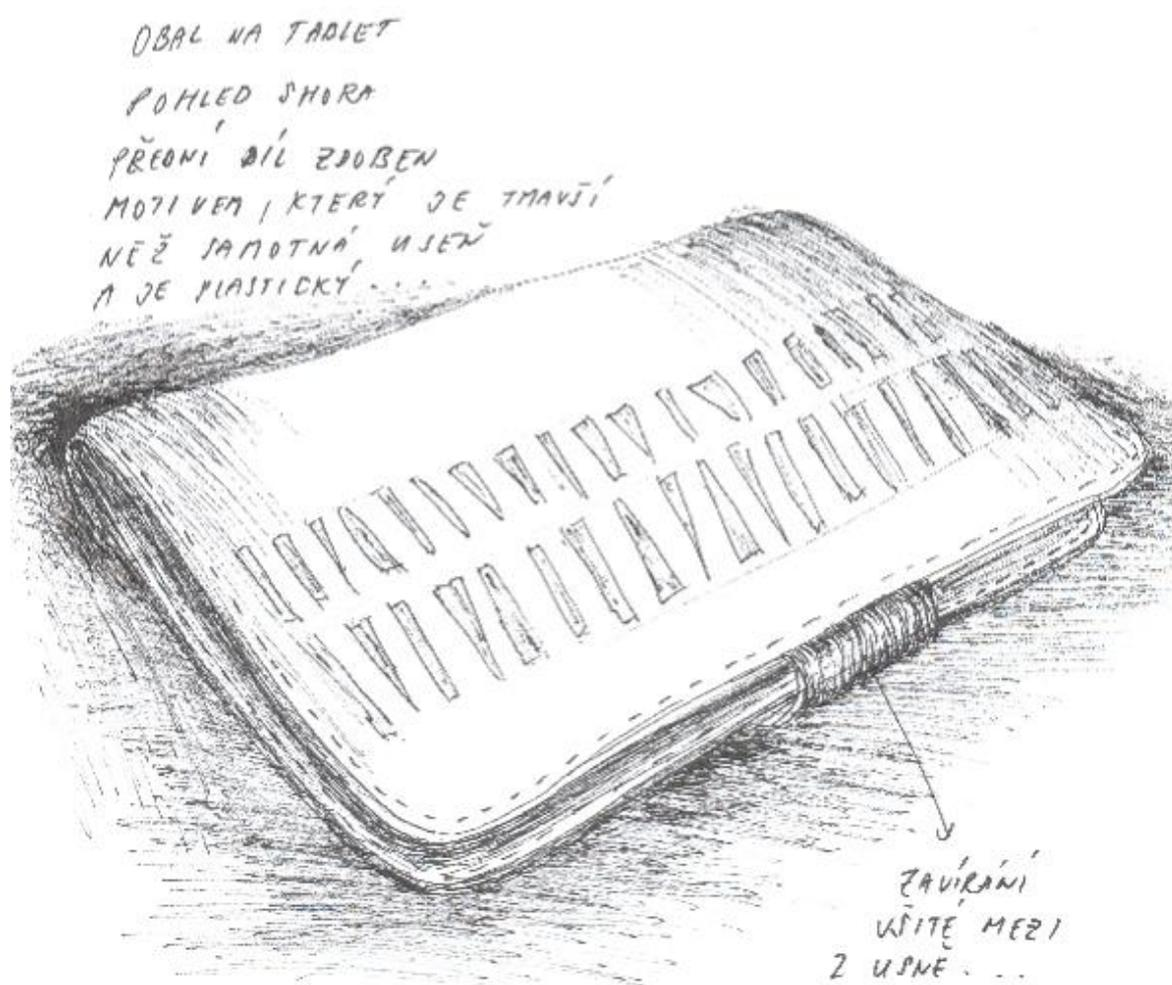 OBAL NA TABLET
POHLED SHORA
PŘEDNÍ DÍL ZDOBEN
MOTIVEM, KTERÝ JE TMAVŠÍ
NEŽ SAMOTNÁ USEŇ
A JE PLASTICKÝ...
ZAVÍRÁNÍ
VŠITÉ MEZI
2 USNĚ...